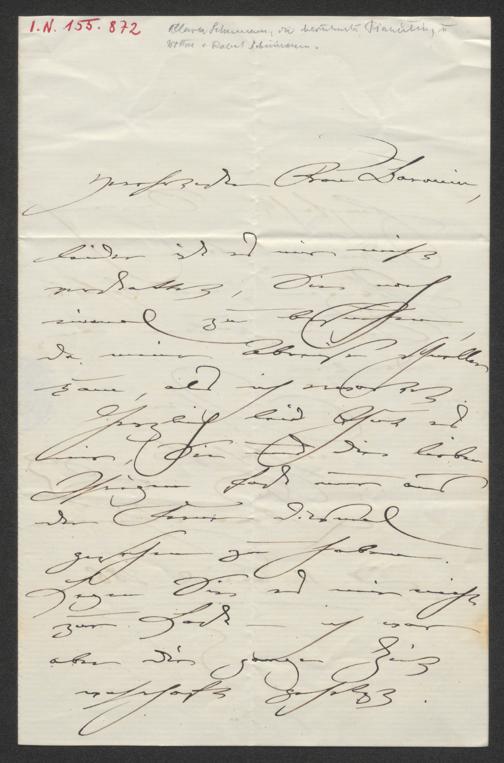 I.N. 155.872
Clara Schumann, die berühmte Pianistin, u.
Wittwe v. Robert Schumann.
Verehrteste Frau Baronin,
leider ist es mir nicht
, Sie noch
einmal zu besuchen,
da meine Abreise schneller
kam, als ich
Herzlich leid thut es
mir, Sie und die lieben
Ihrigen fast nur aus
der Ferne diesmal
gesehen zu haben.
Legen Sie es mir nicht
zur Last — ich war
aber die ganze Zeit
wahrhaft gehetzt.